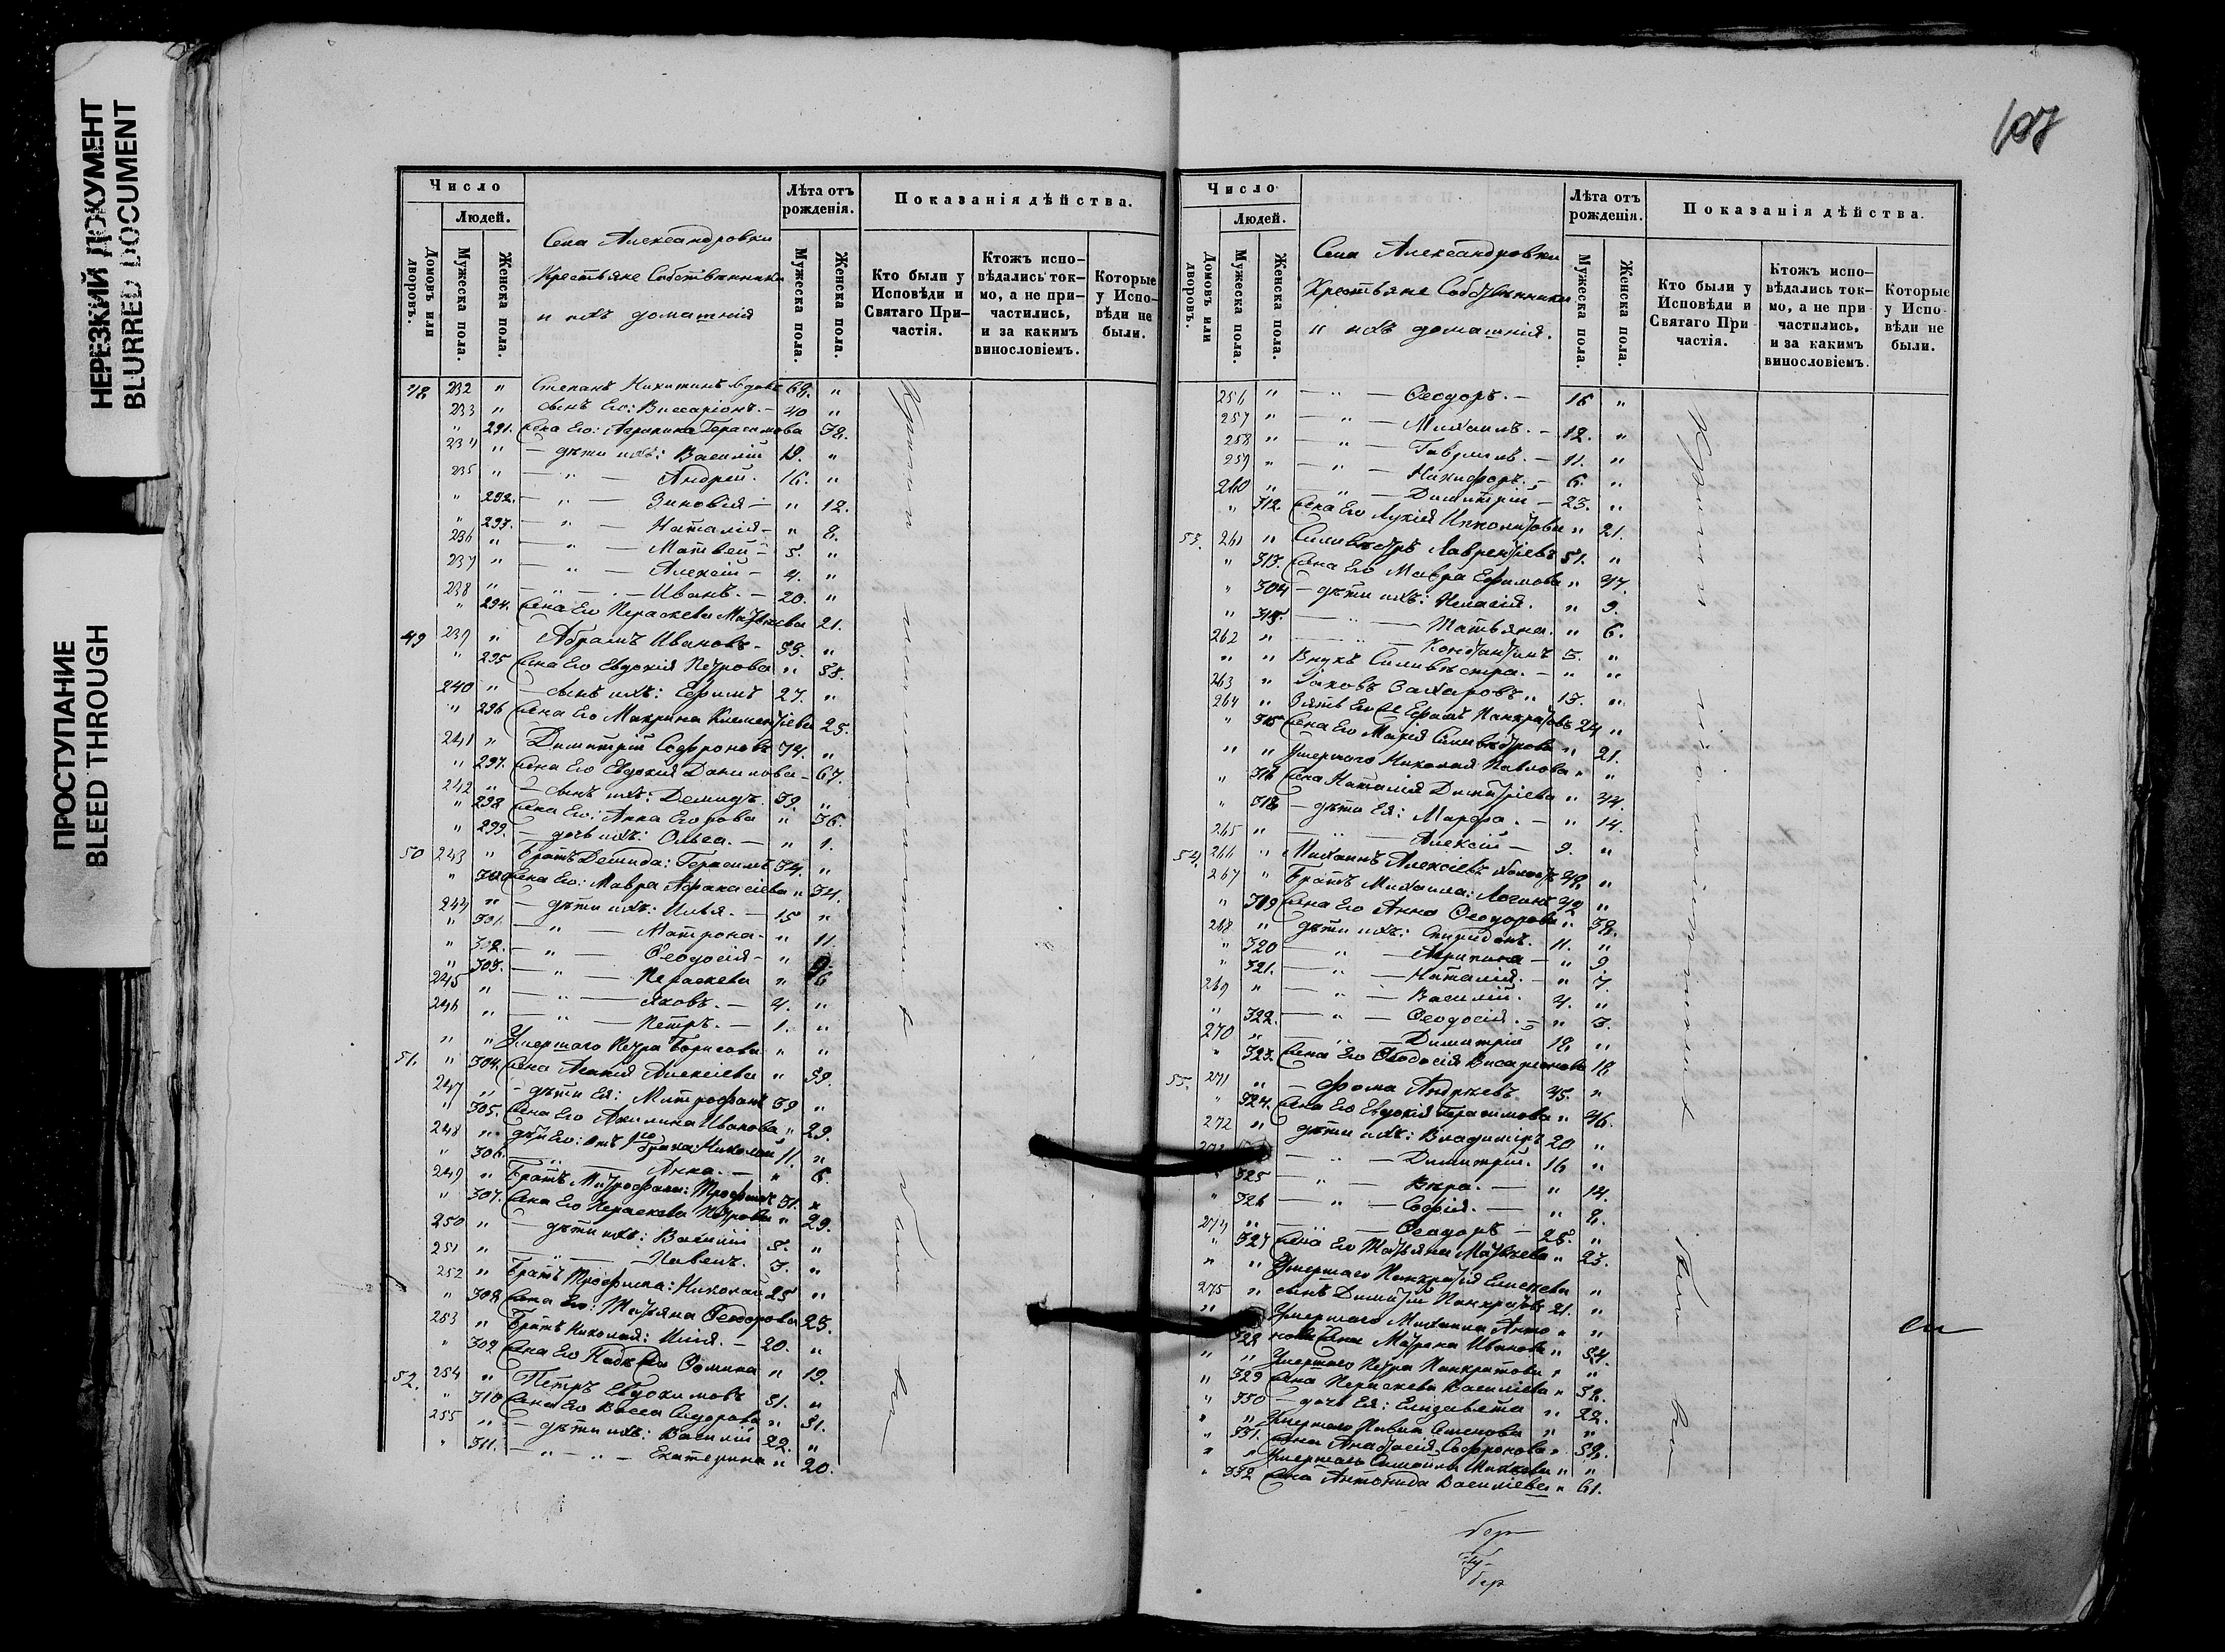 НЕРЕЗКИЙ ДОКУМЕНТ
BLURRED DOCUMENT
ПРОСТУПАНИЕ
BLEED THROUGH
Число
Людей.
Домовъ или дворовъ.
Мужеска пола.
Женска пола.
Села Александровки
Крестьяне Собственники
и ихъ домашнія
Лѣта отъ рожденія.
Мужеска пола.
Женска пола.
Показанія дѣйства.
Кто были у Исповѣди и Святаго При-частія.
Ктожъ испо-вѣдались ток-мо, а не при-частились, и за какимъ винословіемъ.
Которые у Испо-вѣди не были.
48 232 " Степанъ Никитинъ вдовъ 68. "
233 " сынъ Его: Виссаріонъ. - 40 "
" 291. жена Его: Агрипина Герасимова 38.
234 " - дѣти ихъ: Василій 19. "
235 " - " - Андрей. 16. "
" 292. - " - Зиновія - " 12.
" 293. - " - Наталія - " 8.
236 " - " - Матвей - 5. "
237 " - " - Алексій - 4. "
238 " - " - Иванъ. - 20. "
" 294. жена Его Пераскева Матвѣева 21.
49 239 " Абрамъ Ивановъ. 59. "
" 295 жена Его Евдокія Петрова " 58.
240 " - сынъ ихъ: Ефимъ 27. "
" 296 жена Его Макрина Климентіева 25.
241 " Димитрій Софроновъ 74. "
" 297. жена Его Евдокія Данилова - 67.
242 " - сынъ ихъ: Демидъ. 39. "
" 298 жена Его: Анна Егорова " 36.
" 299. - дочь ихъ: Ольга. - " 1.
50 243 " Братъ Демида: Герасимъ 34. "
" 300 жена Его: Мавра Афанасіева " 34.
244 " - дѣти ихъ: Илья. - 15 "
" 301. - " - Матрона - " 11
" 302. - " - Ѳеодосія - " 9
" 303. - " - Пераскева " 6
245 " - " - Яковъ. - 4. "
246 " - " - Петръ. - 1. "
" " Умершаго Петра Борисова " "
51. " 304. жена Агафія Алексіева " 59.
247 " - дѣти Ея: Митрофанъ 39 "
" 305. жена Его Акилина Иванова " 29.
248 " дѣти Его: отъ 1го брака: Николай 11. "
" 306. - " - Анна. - " 6.
249 " Братъ Митрофана: Трофимъ 31. "
" 307. жена Его Пераскева Петрова " 29.
250 " - дѣти ихъ: Василій 5. "
251 " - " - Павелъ. 3. "
252 " Братъ Трофима: Николай 25 "
" 308 жена Его: Татьяна Ѳеодорова 25.
253 " Братъ Николая: Илія. - 20. "
" 309 жена Его Надежда Ѳомина " 19.
52. 254 " Петръ Евдокимовъ 51. "
" 310 жена Его Васса Сидорова " 51.
255 " - дѣти ихъ: Василій 22. "
" 311. - " - Екатерина " 20.
107
Число
Людей.
Домовъ или дворовъ.
Мужеска пола.
Женска пола.
Села Александровки
Крестьяне Собственники
и ихъ домашнія.
Лѣта отъ рожденія.
Мужеска пола.
Женска пола.
Показанія дѣйства.
Кто были у Исповѣди и Святаго При частія.
Ктожъ испо-вѣдались ток-мо, а не при частились, и за какимъ винословіемъ.
Которые у Испо-вѣди не были.
256 " - " - Ѳеодоръ. - 16 "
257 " - " - Михаилъ. - 12. "
258 " - " - Гавріилъ. - 11. "
259 " - " - Никифоръ. - 6. "
260 " - " - Димитрій - 23. "
" 312. жена Его Лукія Ипполитова " 21.
53. 261 " Силивестръ Лаврентіевъ 51. "
" 313. жена Его Мавра Ефимова " 47.
" 304 - дѣти ихъ: Пелагія. " 9.
" 315. - " - Татьяна. " 6.
262 " - " - Константинъ 3. "
" " Внукъ Силивестра. - " "
263 " Іаковъ Захаровъ " 13. "
264 " Зять Его Ефимъ Панкратовъ 24 "
" 315 жена Его Марія Силивестрова " 21.
" " Умершаго Николая Павлова " "
" 316 жена Наталія Димитріева " 44.
" 318 - дѣти Ея: Марфа. - " 14.
265 " - " - Алексій - 9. "
54. 266 " Михаилъ Алексіевъ холостъ 48. "
267 " Братъ Михаила: Логинъ 42 "
" 319 жена Его Анна Ѳеодорова " 38.
268 " дѣти ихъ: Спиридонъ. 11. "
" 320 - " - Агрипина - " 9
" 321. - " - Наталія. - " 7.
269 " - " - Василій. 4. "
" 322. - " - Ѳеодосія. - " 3.
270 " - " - Димитрій 18. "
" 323. жена Его Ѳеодосія Висаріонова 18
55. 271 " - Фома Андреевъ 45. "
" 324. жена Его Евдокія Герасимова " 46.
272 " дѣти ихъ: Владиміръ 20 "
273 - " - Димитрій. 16 "
" 325 - " - Вѣра. - " 14.
" 326 - " - Софія. - " 8.
274 " - " - Ѳеодоръ - 25. "
" 327 жена Его Татьяна Матвѣева " 23.
" " Умершаго Панкратія Елисеева "
275 " сынъ Димитрій Панкратовъ 21. "
" Умершаго Михаила Анто " "
328 нова жена Матрена Иванова " 54.
" " Умершаго Петра Панкратова " "
" 329 жена Пераскева Василіева " 58.
" 330 - дочь Ея: Елизавета " 22.
" " Умершаго Павла Семенова " "
" 331. жена Анастасія Софронова " 59.
" " Умершаго Самойла Михеева " "
" 332 жена Антонида Василіева " 61.